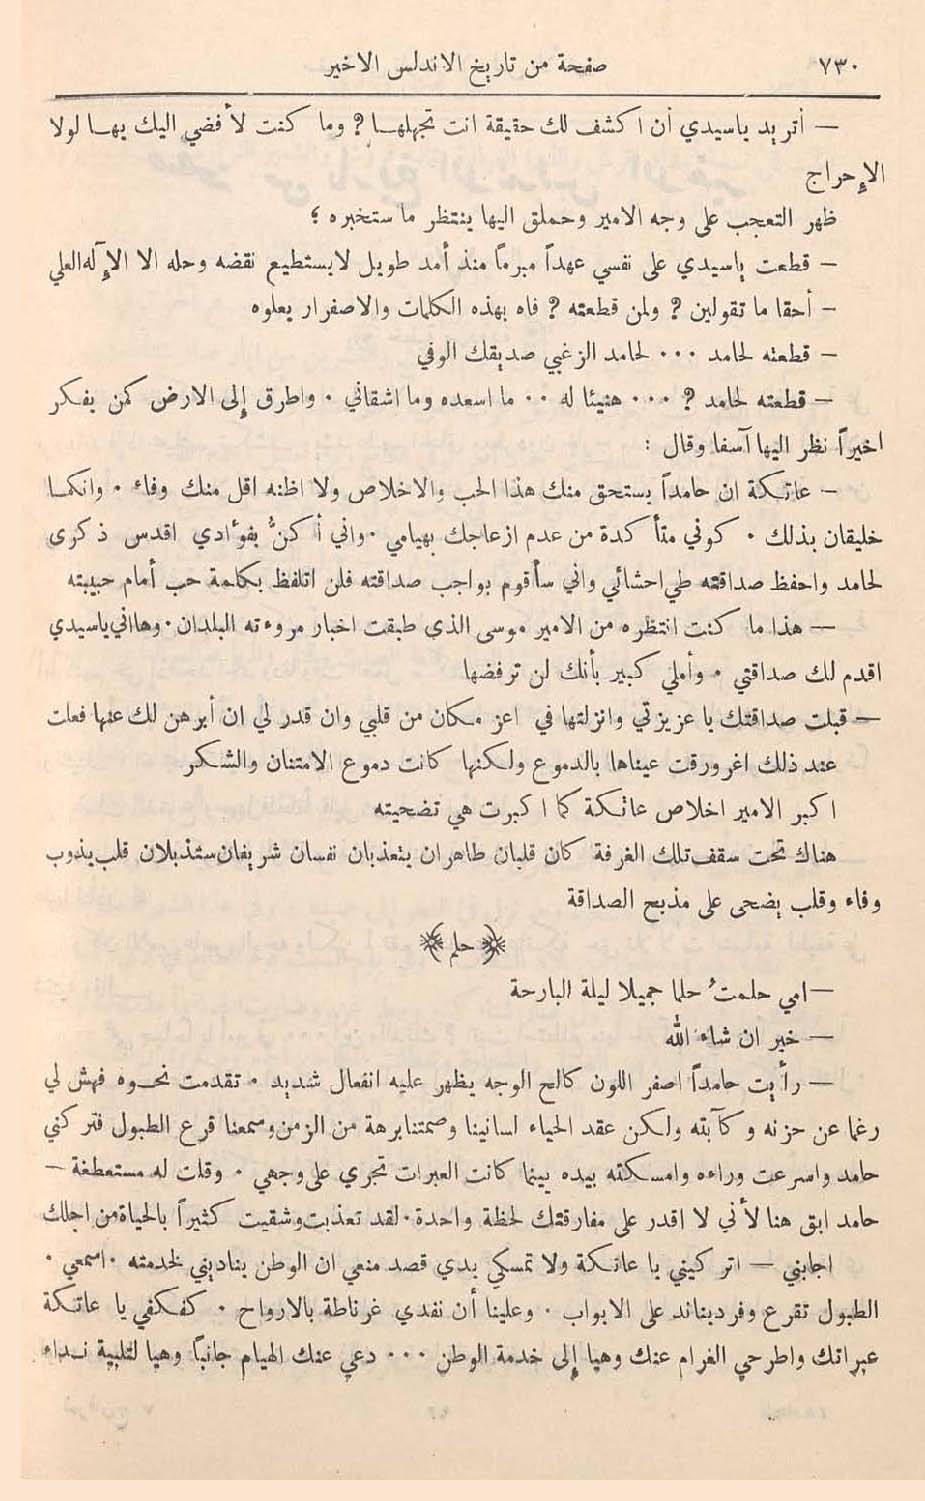 ٧٣٠
صفحة من تاريخ الاندلس الاخير
— أتريد ياسيدي أن اكشف لك حقيقة انت تجهلهـا ? وما كنت لأفضي اليك بهـا لولا
الإحراج
ظهر التعجب على وجه الامير وحملق اليها ينتظر ما ستخبره ؛
— قطعت ياسيدي على نفسي عهداً مبرماً منذ أمد طويل لايستطيع نقضه وحله الا الإله العلي
— أحقا ما تقولين ? ولمن قطعته ? فاه بهذه الكلمات والاصفرار يعلوه
— قطعته لحامد ٠٠٠ لحامد الزغبي صديقك الوفي
— قطعته لحامد ? ٠٠٠ هنيئا له ٠٠ ما اسعده وما اشقاني ٠ واطرق إلى الارض كمن يفكر
اخيراً نظر اليها آسفا وقال :
— عاتـكة ان حامداً يستحق منك هذا الحب والاخلاص ولا اظنه اقل منك وفاء ٠ وانكمـا
خليقان بذلك ٠ كوني متأكدة من عدم ازعاجك بهيامي ٠ واني أكنُّ بفوءادي اقدس ذكرى
لحامد واحفظ صداقته طي احشائي واني سأقوم بواجب صداقته فلن اتلفظ بكلمة حب أمام حبيبته
— هذا ما كنت انتظره من الامير موسى الذي طبقت اخبار مروءته البلدان ٠ وهااني ياسيدي
اقدم لك صداقتي ٠ وأملي كبير بأنك لن ترفضها
— قبلت صداقتك يا عزيزتي وانزلتها في اعز مكان من قلبي وان قدر لي ان أبرهن لك عنها فعلت
عند ذلك اغرورقت عيناها بالدموع ولكنها كانت دموع الامتنان والشكر
اكبر الامير اخلاص عاتكة كما اكبرت هي تضحيته
هناك تحت سقف تلك الغرفة كان قلبان طاهران يتعذبان نفسان شريفان ستذبلان قلب يذوب
وفاء وقلب يضحى على مذبح الصداقة
حلم
— امي حلمتُ حلما جميلا ليلة البارحة
— خير ان شاء الله
— رأيت حامداً اصفر اللون كالح الوجه يظهر عليه انفعال شديد ٠ تقدمت نحـوه فهش لي
رغما عن حزنه وكآبته ولـكن عقد الحياء لسانينا وصمتنا برهة من الزمن وسمعنا قرع الطبول فتركني
حامد واسرعت وراءه وامسـكته بيده بينما كانت العبرات تجري على وجهي ٠ وقلت له مستعطفة —
حامد ابق هنا لأني لا اقدر على مفارقتك لحظة واحدة ٠ لقد تعذبت وشقيت كثيراً بالحياة من اجلك
اجابني — اتركيني يا عاتـكة ولا تمسكي يدي قصد منعي ان الوطن يناديني لخدمته ٠ اسمعي ٠
الطبول تقرع وفرديناند على الابواب ٠ وعلينا أن نفدي غرناطة بالارواح ٠ كفكفي يا عاتـكة
عبراتك واطرحي الغرام عنك وهيا إلى خدمة الوطن ٠٠٠ دعي عنك الهيام جانباً وهيا لتلبية نـداء